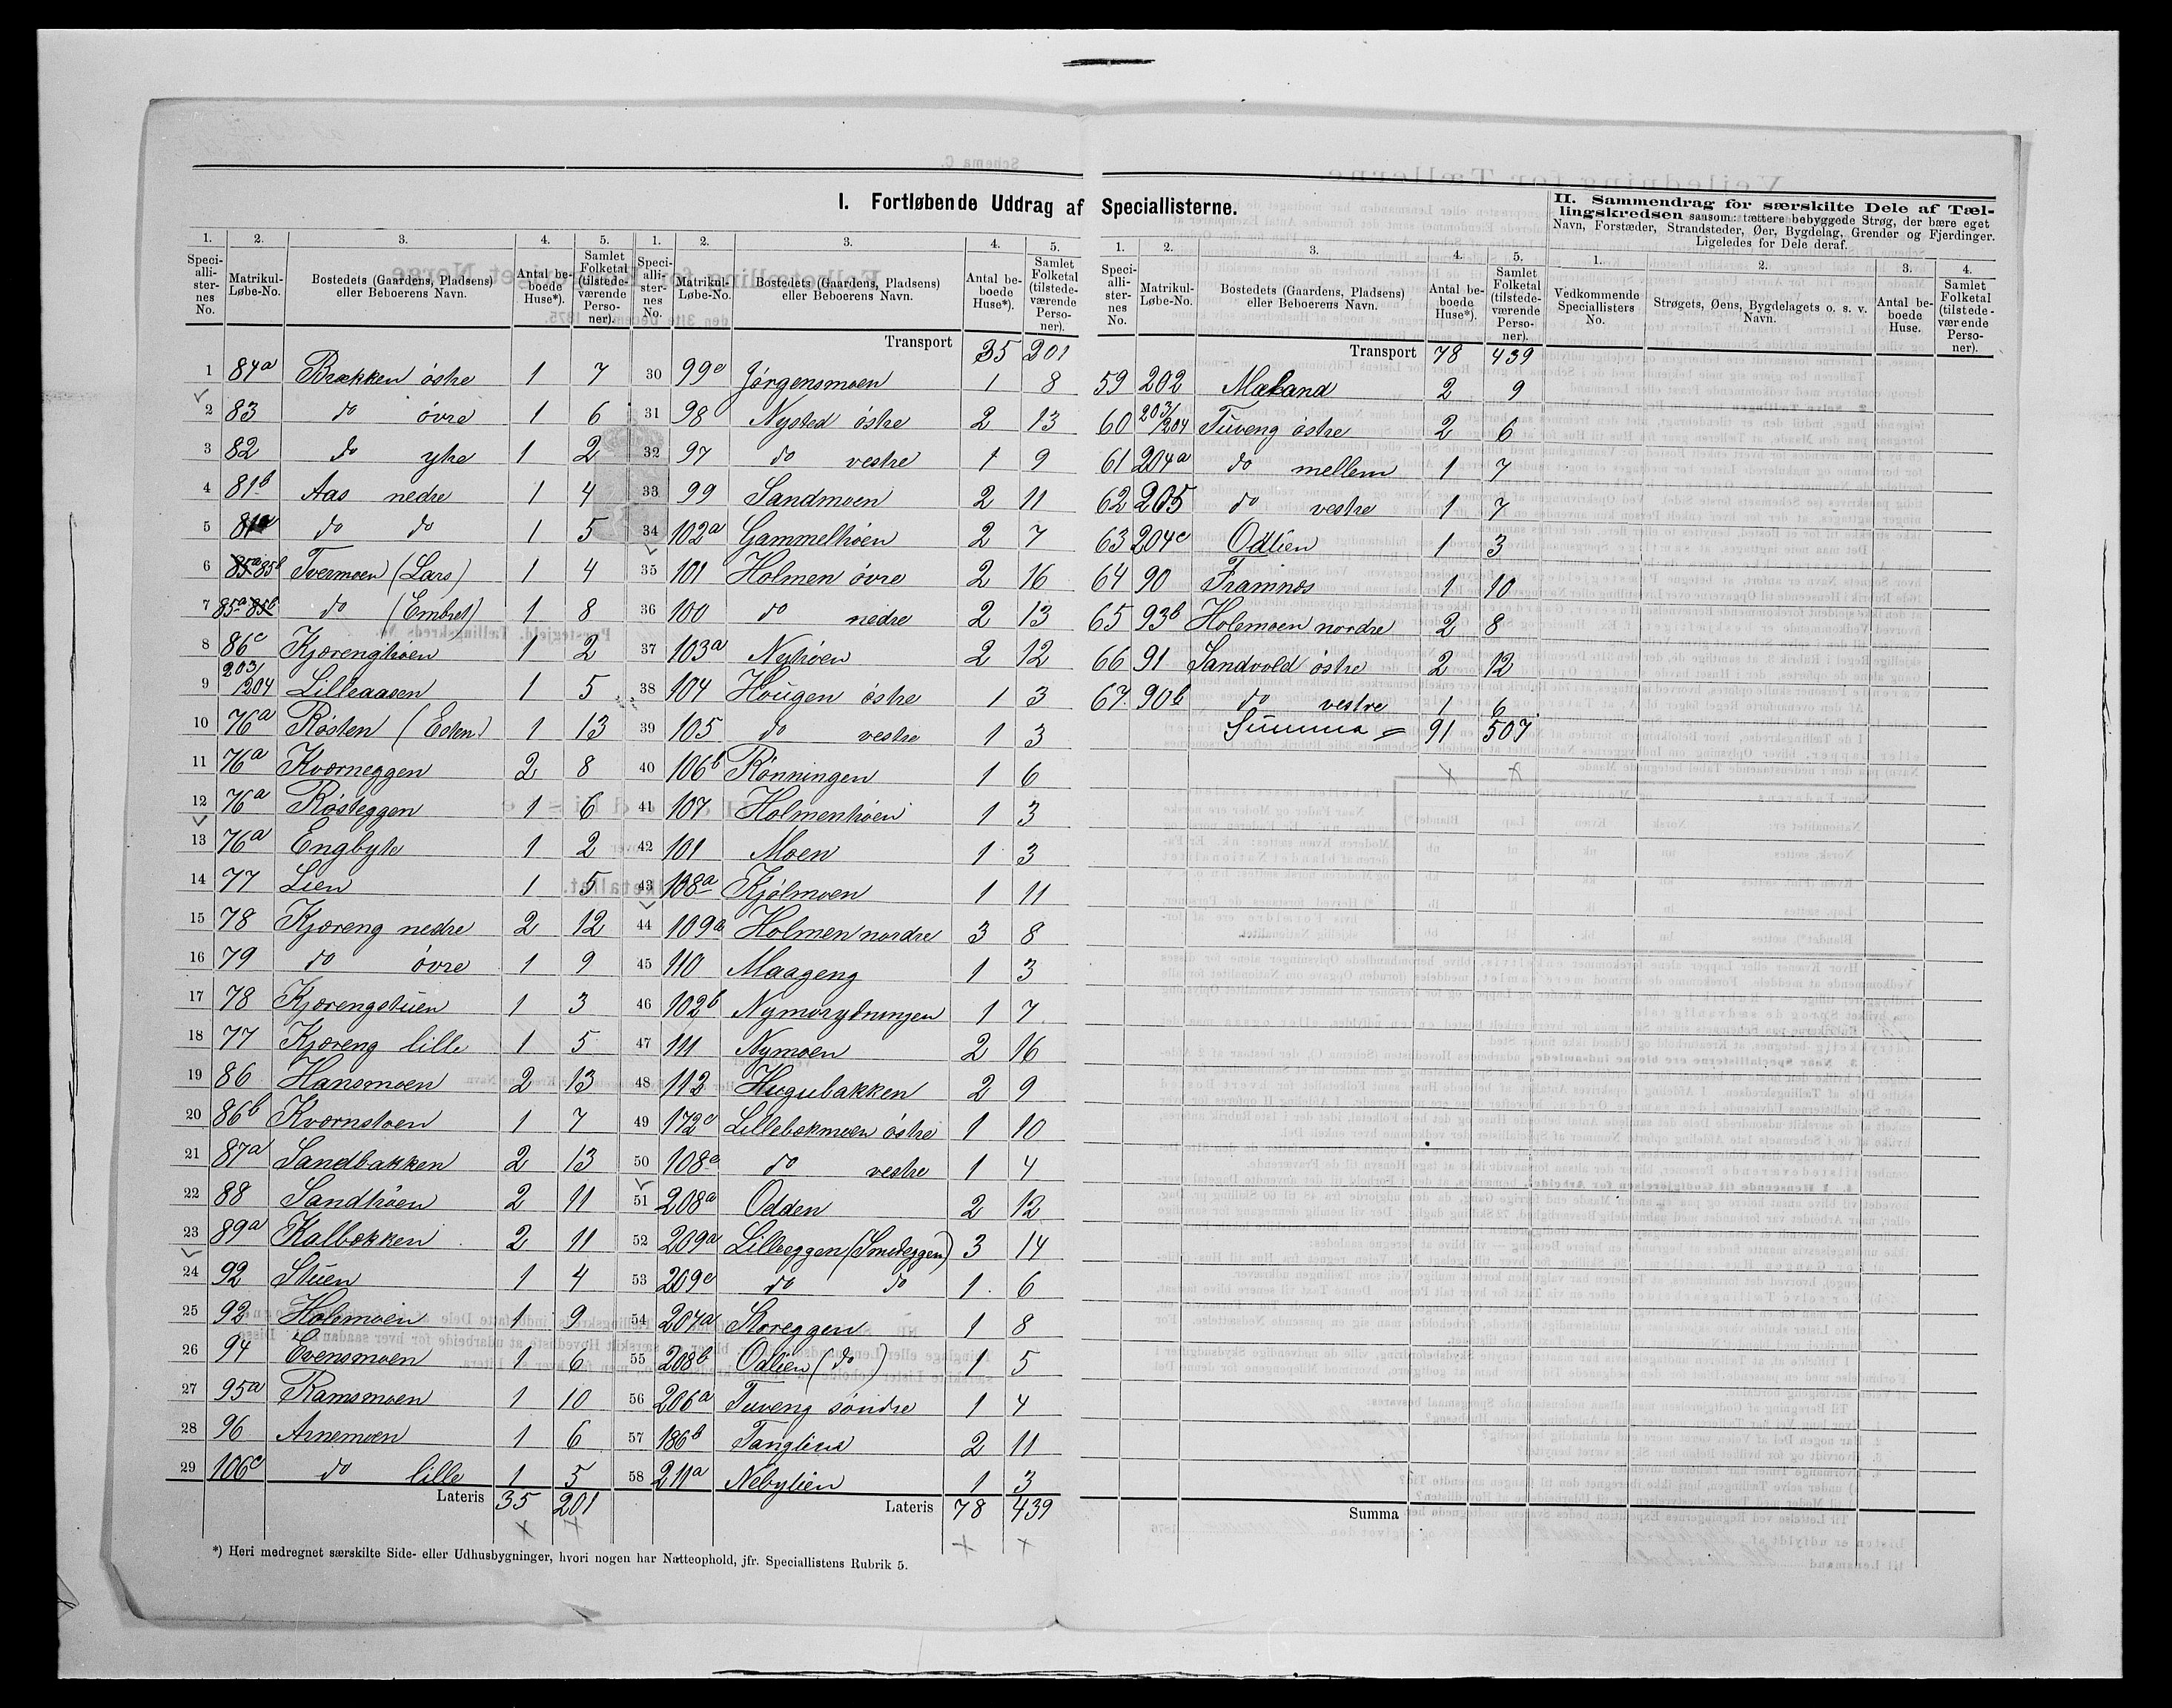 I. Fortløbende Uddrag af Speciallisterne.
II. Sammendrag for særskilte Dele af Tæl-
lingskredsen saasom: tættere bebyggede Strøg, der bære eget
Navn, Forstæder, Strandsteder, Øer, Bygdelag, Grender og Fjerdinger.
Ligeledes for Dele deraf.
1. 2. 3. 4. 5.
Speci-alli-ster-nes No. Matrikul-Løbe-No. Bostedets (Gaardens, Pladsens) eller Beboerens Navn. Antal be-boede Huse*). Samlet Folketal (tilstede-værende Perso-ner).
1 84a Brækken östre 1 7
2 83 do övre 1 6
3 82 do ytre 1 2
4 81b Aas nedre 1 4
5 81a do do 1 5
6 85a 85b Tvermoen (Lars) 1 4
7 85a 85b do (Embret) 1 8
8 86c Kjærenghöen 1 2
9 203/204 Lilleaasen 1 5
10 76a Røsten (Esten) 1 13
11 76a Kværneggen 2 8
12 76a Røsteggen 1 6
13 76a Engbyte 1 2
14 77 Lien 1 5
15 78 Kjæreng nedre 2 12
16 79 do övre 1 9
17 78 Kjærengstuen 1 3
18 77 Kjæreng lille 1 5
19 86 Hansmoen 2 13
20 86b Kvornstoen 1 7
21 87a Sandbakken 2 13
22 88 Sandhöen 2 11
23 89a Kalbækken 2 11
24 92 Stuen 1 4
25 92 Holemoen 1 9
26 94 Evensmoen 1 6
27 95a Ramsmoen 1 10
28 96 Arnemoen 1 6
29 106c do lille 1 5
Lateris 35 201
1. 2. 3. 4. 5.
Speci-alli-ster-nes No. Matrikul-Løbe-No. Bostedets (Gaardens, Pladsens) eller Beboerens Navn. Antal be-boede Huse*). Samlet Folketal (tilstede-værende Perso-ner).
Transport 35 201
30 99c Jörgensmoen 1 8
31 98 Nysted östre 2 13
32 97 do vestre 1 9
33 99 Sandmoen 2 11
34 102a Gammelhöen 2 7
35 101 Holmen övre 2 16
36 100 do nedre 2 13
37 103a Nyhöen 2 12
38 104 Hougen östre 1 3
39 105 do vestre 1 3
40 106b Rönningen 1 6
41 107 Holmenhöen 1 3
42 101 Moen 1 3
43 108a Kjölmoen 1 11
44 109a Holmen nordre 3 8
45 110 Maageng 1 3
46 102b Nymorydningen 1 7
47 111 Nymoen 2 16
48 112 Hugubakken 2 9
49 172c Lillebækmoen östre 1 10
50 108c do vestre 1 4
51 208a Odden 2 12
52 209a Lilleeggen (Smedeggen) 3 14
53 209c do do 1 6
54 207a Storeggen 1 8
55 208b Odlien (do) 1 5
56 206a Tuveng söndre 1 4
57 186b Tanglien 2 11
58 211a Nebylien 1 3
Lateris 78 439
1. 2. 3. 4. 5.
Speci-alli-ster-nes No. Matrikul-Løbe-No. Bostedets (Gaardens, Pladsens) eller Beboerens Navn. Antal be-boede Huse*). Samlet Folketal (tilstede-værende Perso-ner).
Transport 78 439
59 202 Mæland 2 9
60 203/204 Tuveng östre 2 6
61 204a do mellem 1 7
62 205 do vestre 1 7
63 204c Odlien 1 3
64 90 Framnæs 1 10
65 93b Holemoen nordre 2 8
66 91 Sandvold östre 2 12
67. 90b do vestre 1 6
Summa = 91 507
Summa
1. 2. 3. 4.
Vedkommende Speciallisters No. Strøgets, Øens, Bygdelagets o. s. v. Navn. Antal be-boede Huse. Samlet Folketal (tilstede-værende Perso-ner).
*) Heri medregnet særskilte Side- eller Udhusbygninger, hvori nogen har Natteophold, jfr. Speciallistens Rubrik 5.